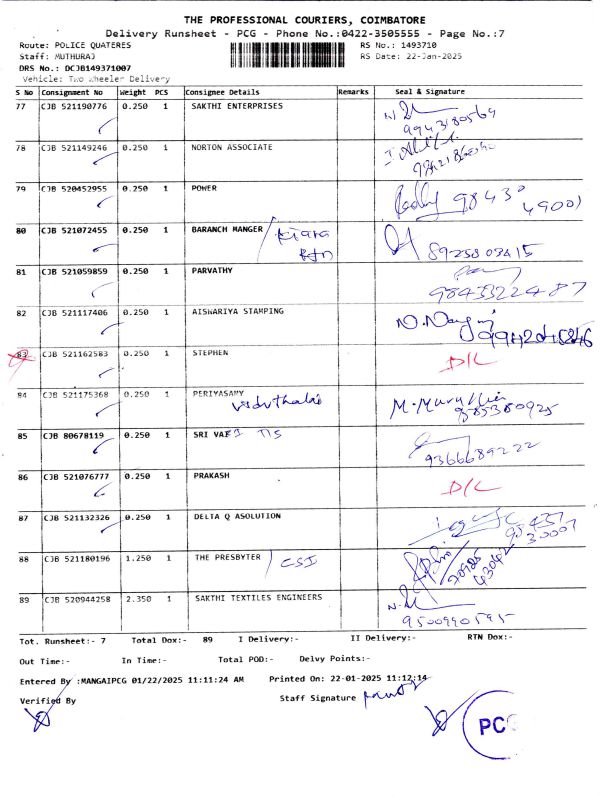 THE PROFESSIONAL COURIERS, COIMBATORE
Delivery Runsheet - PCG - Phone No.:0422-3505555 - Page No.:7
Route: POLICE QUATERES RS No.: 1493710
Staff: MUTHURAJ RS Date: 22-Jan-2025
DRS No.: DCJB149371007
Vehicle: Two Wheeler Delivery
S No Consignment No Weight PCS Consignee Details Remarks Seal & Signature
77 CJB 521190776 0.250 1 SAKTHI ENTERPRISES
9943180569
78 CJB 521149246 0.250 1 NORTON ASSOCIATE
79 CJB 520452955 0.250 1 POWER
98430
49001
80 CJB 521072455 0.250 1 BARANCH MANGER
8925803415
81 CJB 521059859 0.250 1 PARVATHY
9843322487
82 CJB 521117406 0.250 1 AISWARIYA STAMPING
83 CJB 521162583 0.250 1 STEPHEN D/L
84 CJB 521175368 0.250 1 PERIYASAMY
viduthalai
9385380925
85 CJB 80678119 0.250 1 SRI
9366689222
86 CJB 521076777 0.250 1 PRAKASH D/L
87 CJB 521132326 0.250 1 DELTA Q ASOLUTION
98437
30007
88 CJB 521180196 1.250 1 THE PRESBYTER / CSI
89 CJB 520944258 2.350 1 SAKTHI TEXTILES ENGINEERS
9500990595
Tot. Runsheet:- 7 Total Dox:- 89 I Delivery:- II Delivery:- RTN Dox:-
Out Time:- In Time:- Total POD:- Delvy Points:-
Entered By :MANGAIPCG 01/22/2025 11:11:24 AM Printed On: 22-01-2025 11:12:14
Verified By Staff Signature
PC